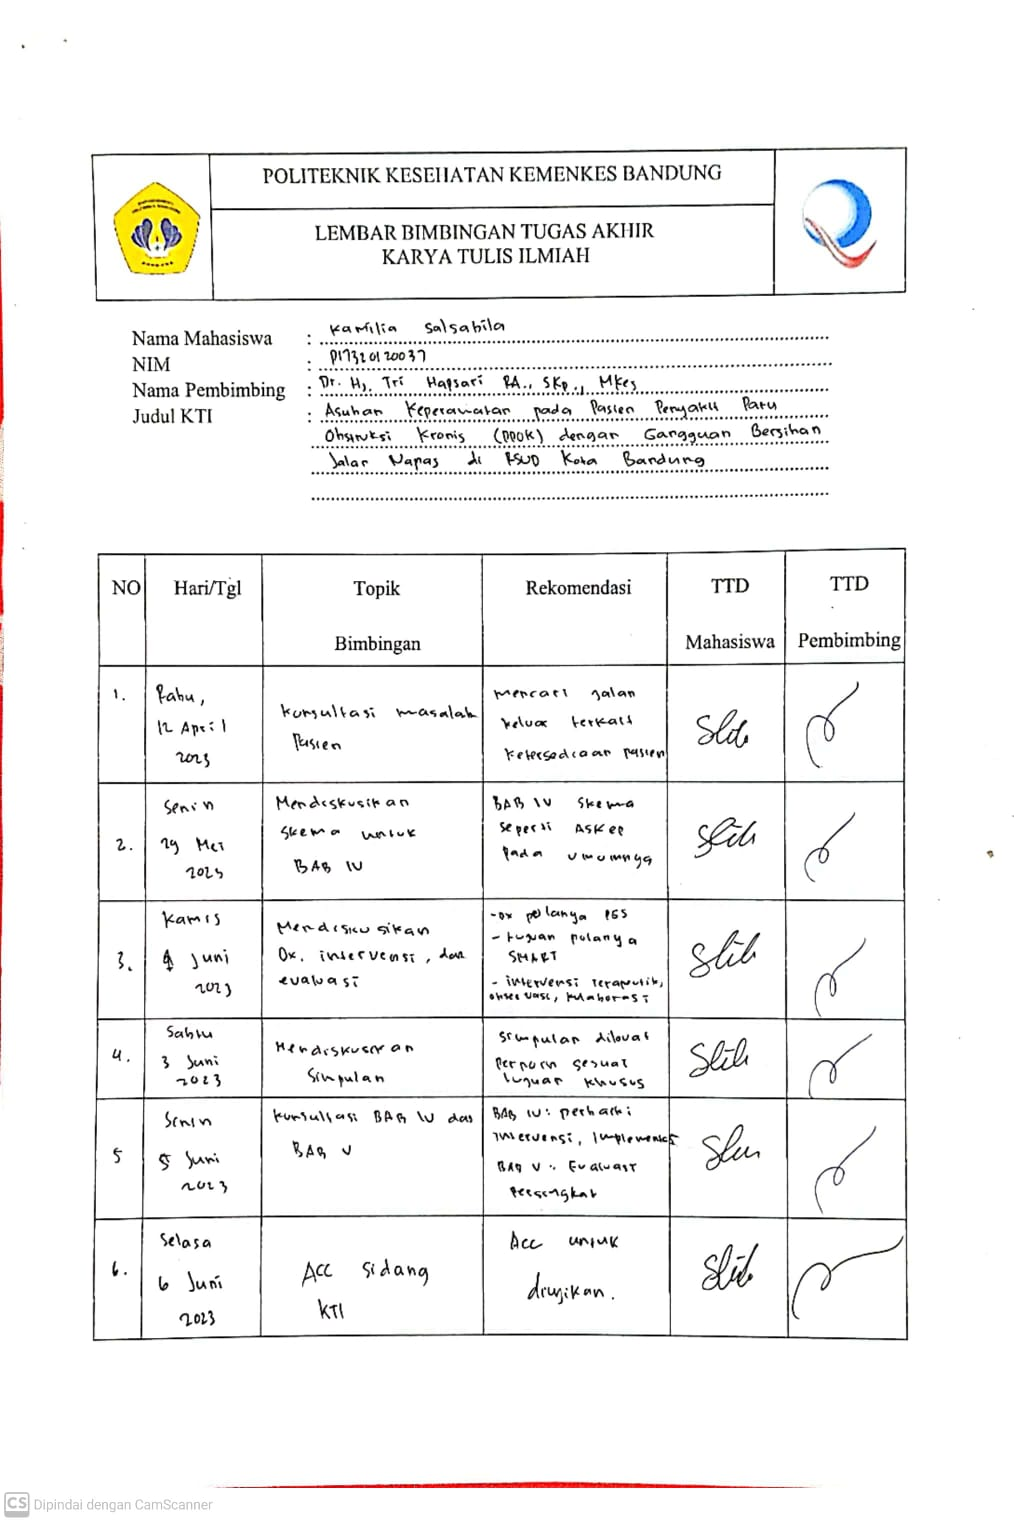 POLITEKNIK KESEHATAN KEMENKES BANDUNG
LEMBAR BIMBINGAN TUGAS AKHIR
KARYA TULIS ILMIAH
Nama Mahasiswa : Kamilia Salsabila
NIM : P17320120037
Nama Pembimbing : Dr. Hj. Tri Hapsari RA., SKp., Mkes
Judul KTI : Asuhan Keperawatan pada Pasien Penyakit Paru
Obstruksi Kronis (PPOK) dengan Gangguan Bersihan
Jalan Napas di RSUD Kota Bandung
NO Hari/Tgl Topik Bimbingan Rekomendasi TTD Mahasiswa TTD Pembimbing
1. Rabu, 12 April 2023
Konsultasi masalah
Pasien
Mencari jalan
keluar terkait
ketersediaan pasien
2. Senin 29 Mei 2023
Mendiskusikan
skema untuk
BAB IV
BAB IV skema
seperti ASKEP
pada umumnya
3. Kamis
Juni
2023
Mendiskusikan
Dx, intervensi, dan
evaluasi
- Dx polanya PES
- tujuan polanya
SMART
- intervensi terapeutik,
observasi, kolaborasi
4. Sabtu
3 Juni
2023
Mendiskusikan
Simpulan
Simpulan dibuat
perpoin sesuai
tujuan khusus
5 Senin
5 Juni
2023
Konsultasi BAB IV dan
BAB V
BAB IV : perbaiki
intervensi, implementasi
BAB V : Evaluasi
persingkat
6. Selasa
6 Juni
2023
Acc sidang
KTI
Acc untuk
diujikan.
CS Dipindai dengan CamScanner